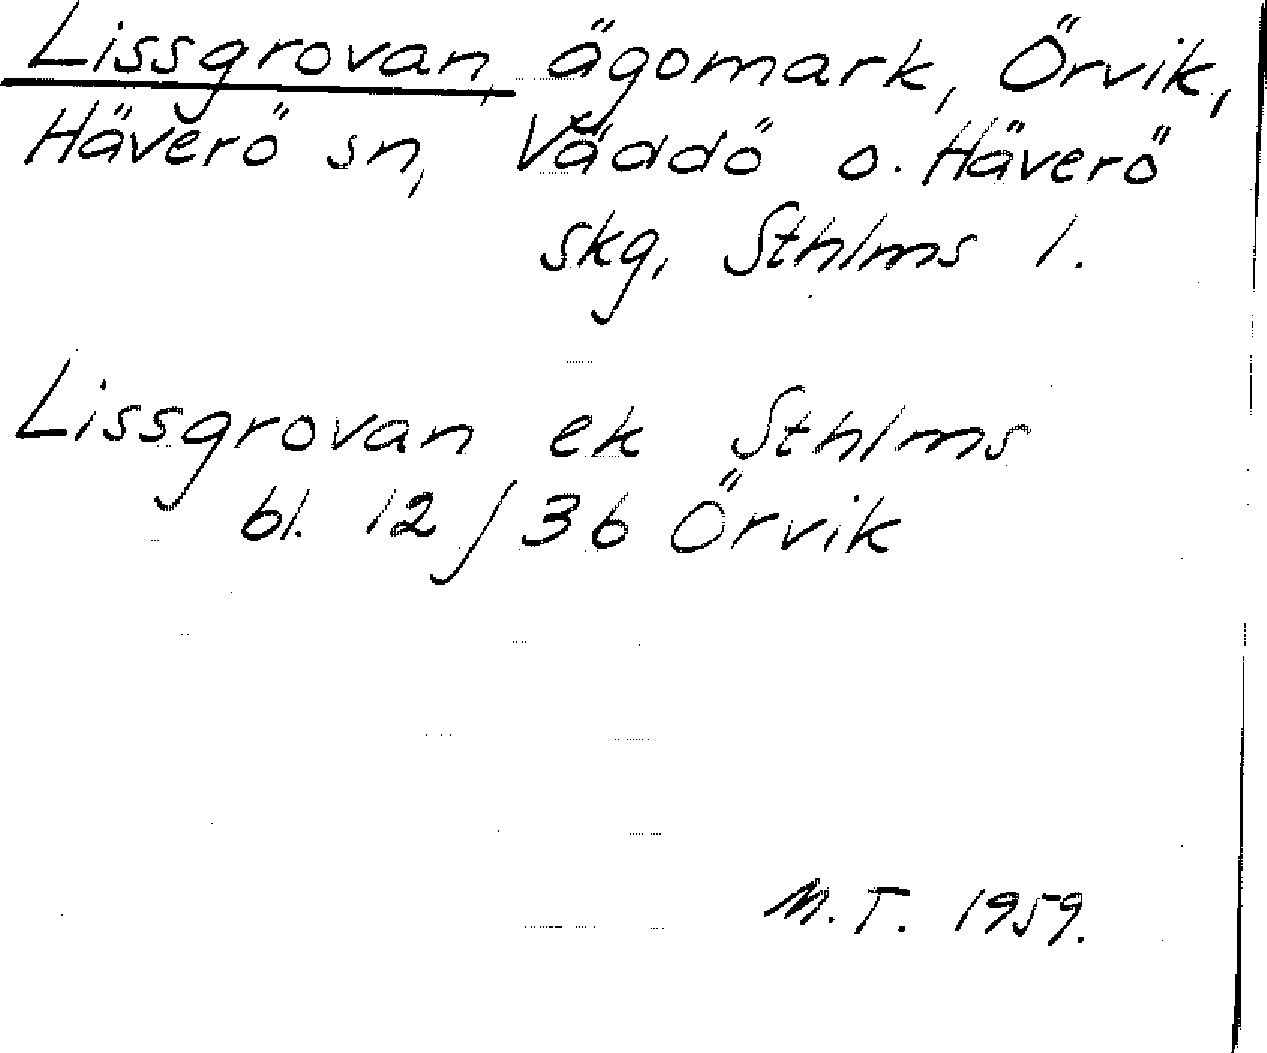 Lissgrovan, ägomark, Örvik,
Häverö sn, Väddö o. Häverö
skg, Sthlms l.
Lissgrovan ek Sthlms
bl. 12/36 Örvik
M.T. 1959.